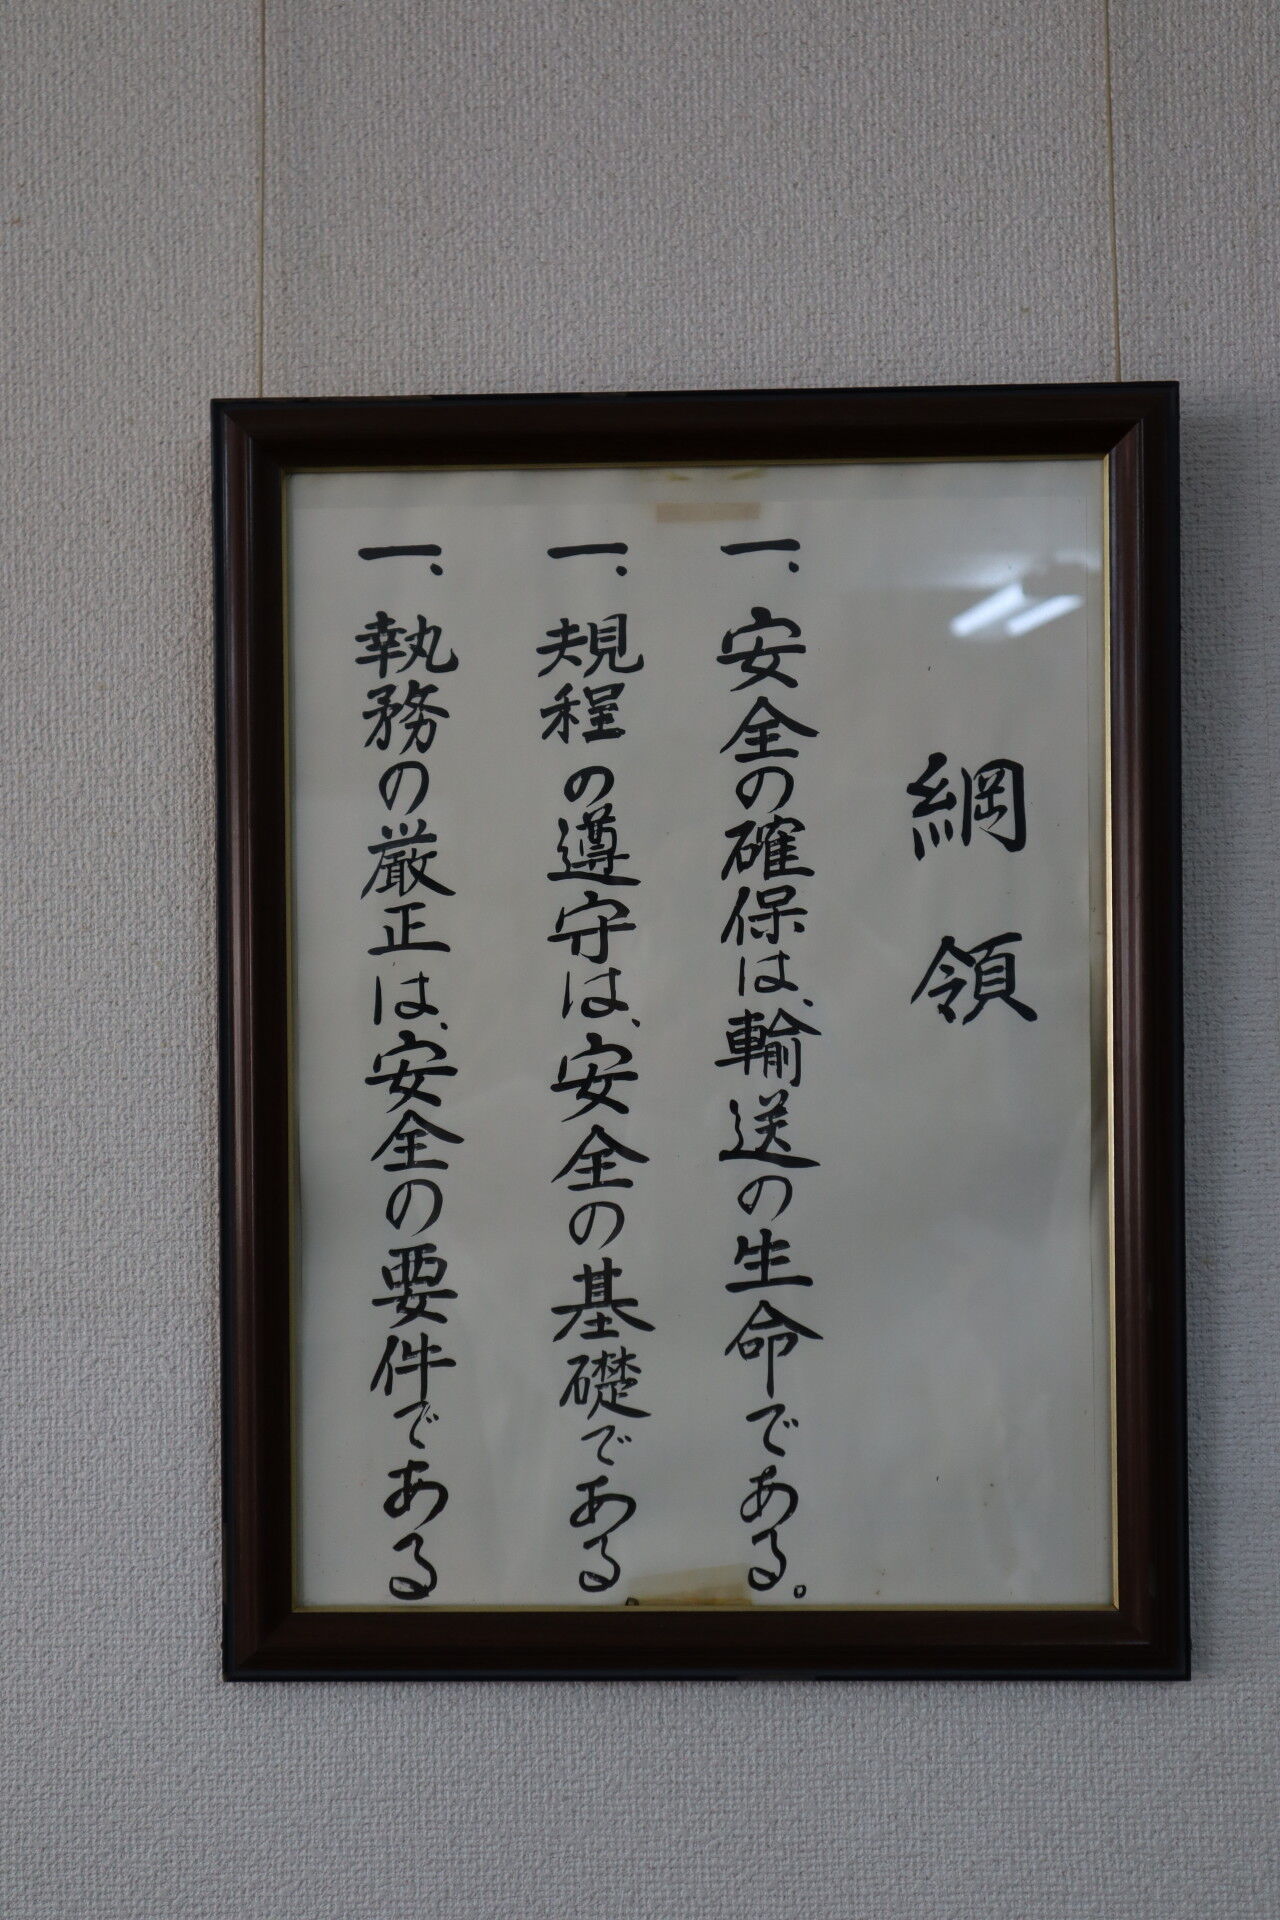 綱領
一、安全の確保は、輸送の生命である。
一、規程の遵守は、安全の基礎である。
一、執務の厳正は、安全の要件である